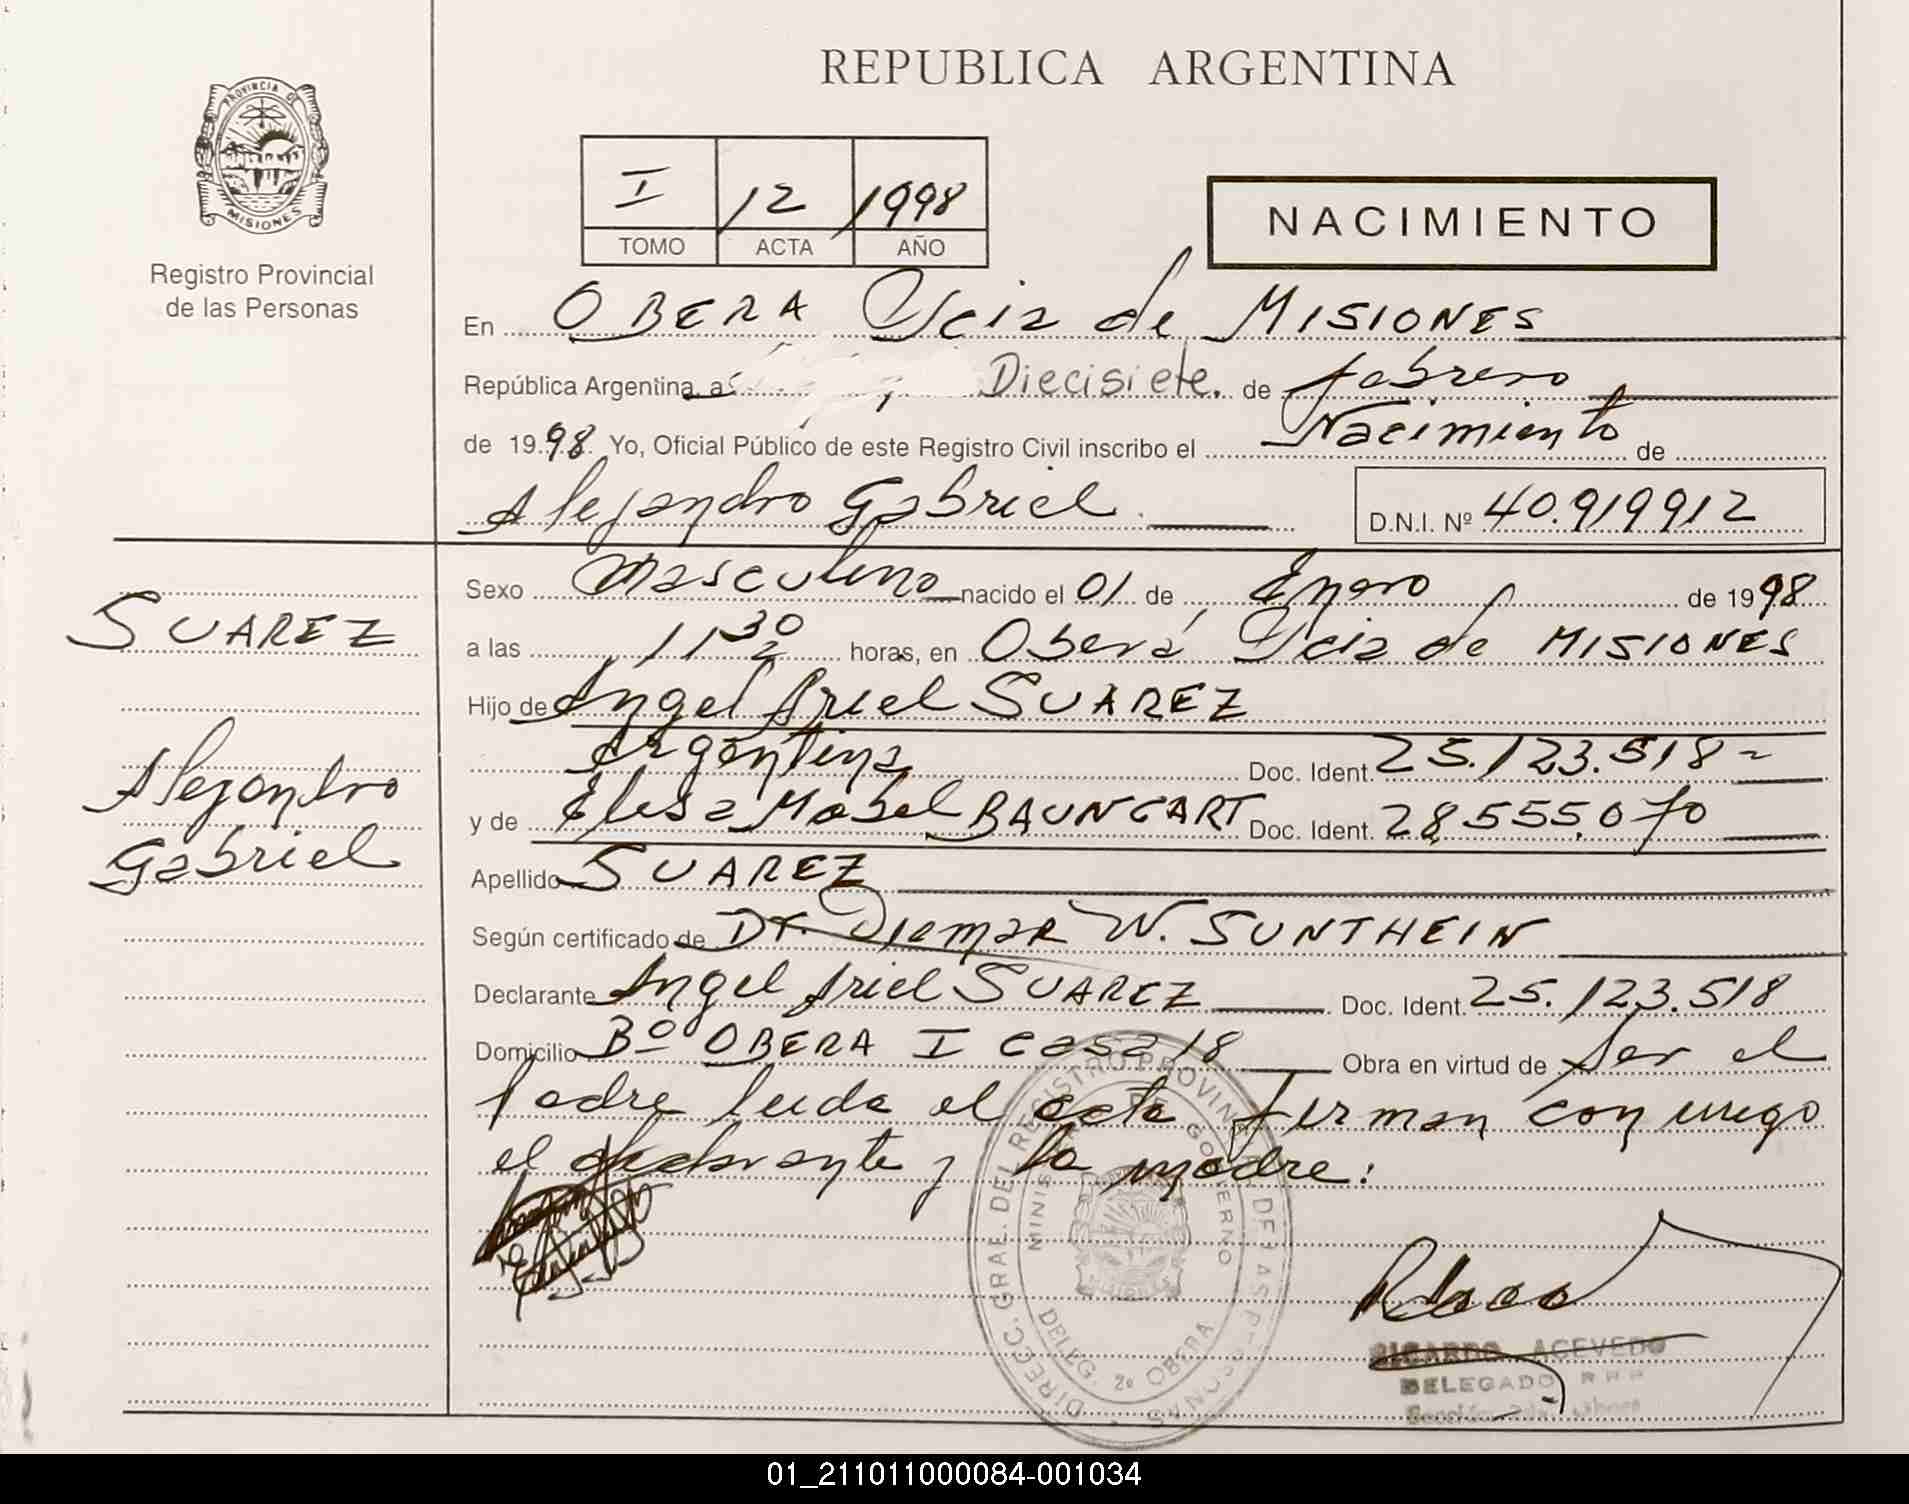 REPUBLICA ARGENTINA
PROVINCIA DE
MISIONES
Registro Provincial
de las Personas
I 12 1998
TOMO ACTA AÑO
NACIMIENTO
En OBERA Pcia de MISIONES
República Argentina, a Diecisiete. de febrero
de 1998 Yo, Oficial Público de este Registro Civil inscribo el Nacimiento de
Alejandro Gabriel D.N.I. Nº 40.919912
SUAREZ
Alejandro
Gabriel
Sexo Masculino nacido el 01 de Enero de 1998
a las 11 30 horas, en Oberá Pcia de MISIONES
Hijo de Angel Ariel SUAREZ
Argentina Doc. Ident. 25.123.518
y de Elisa Mabel BAUNGART Doc. Ident. 28.555.070
Apellido SUAREZ
Según certificado de Dr. Diemar W. SUNTHEIN
Declarante Angel Ariel SUAREZ Doc. Ident. 25.123.518
Domicilio Bº OBERA I casa 18 Obra en virtud de ser el
Padre leida el acta firman conmigo
el declarante y la madre:
DIRECC. GRAL. DEL REGISTRO PROVINCIAL DE LAS PERSONAS
MINIS DE GOBIERNO
DELEG. 2º OBERA
RICARDO ACEVEDO
DELEGADO R P P
01_211011000084-001034